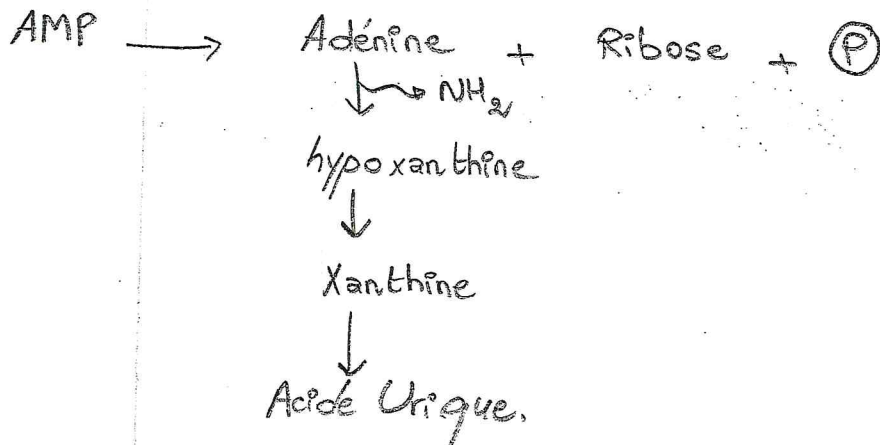 AMP → Adénine + Ribose + P
NH2
hypoxanthine
Xanthine
Acide Urique.